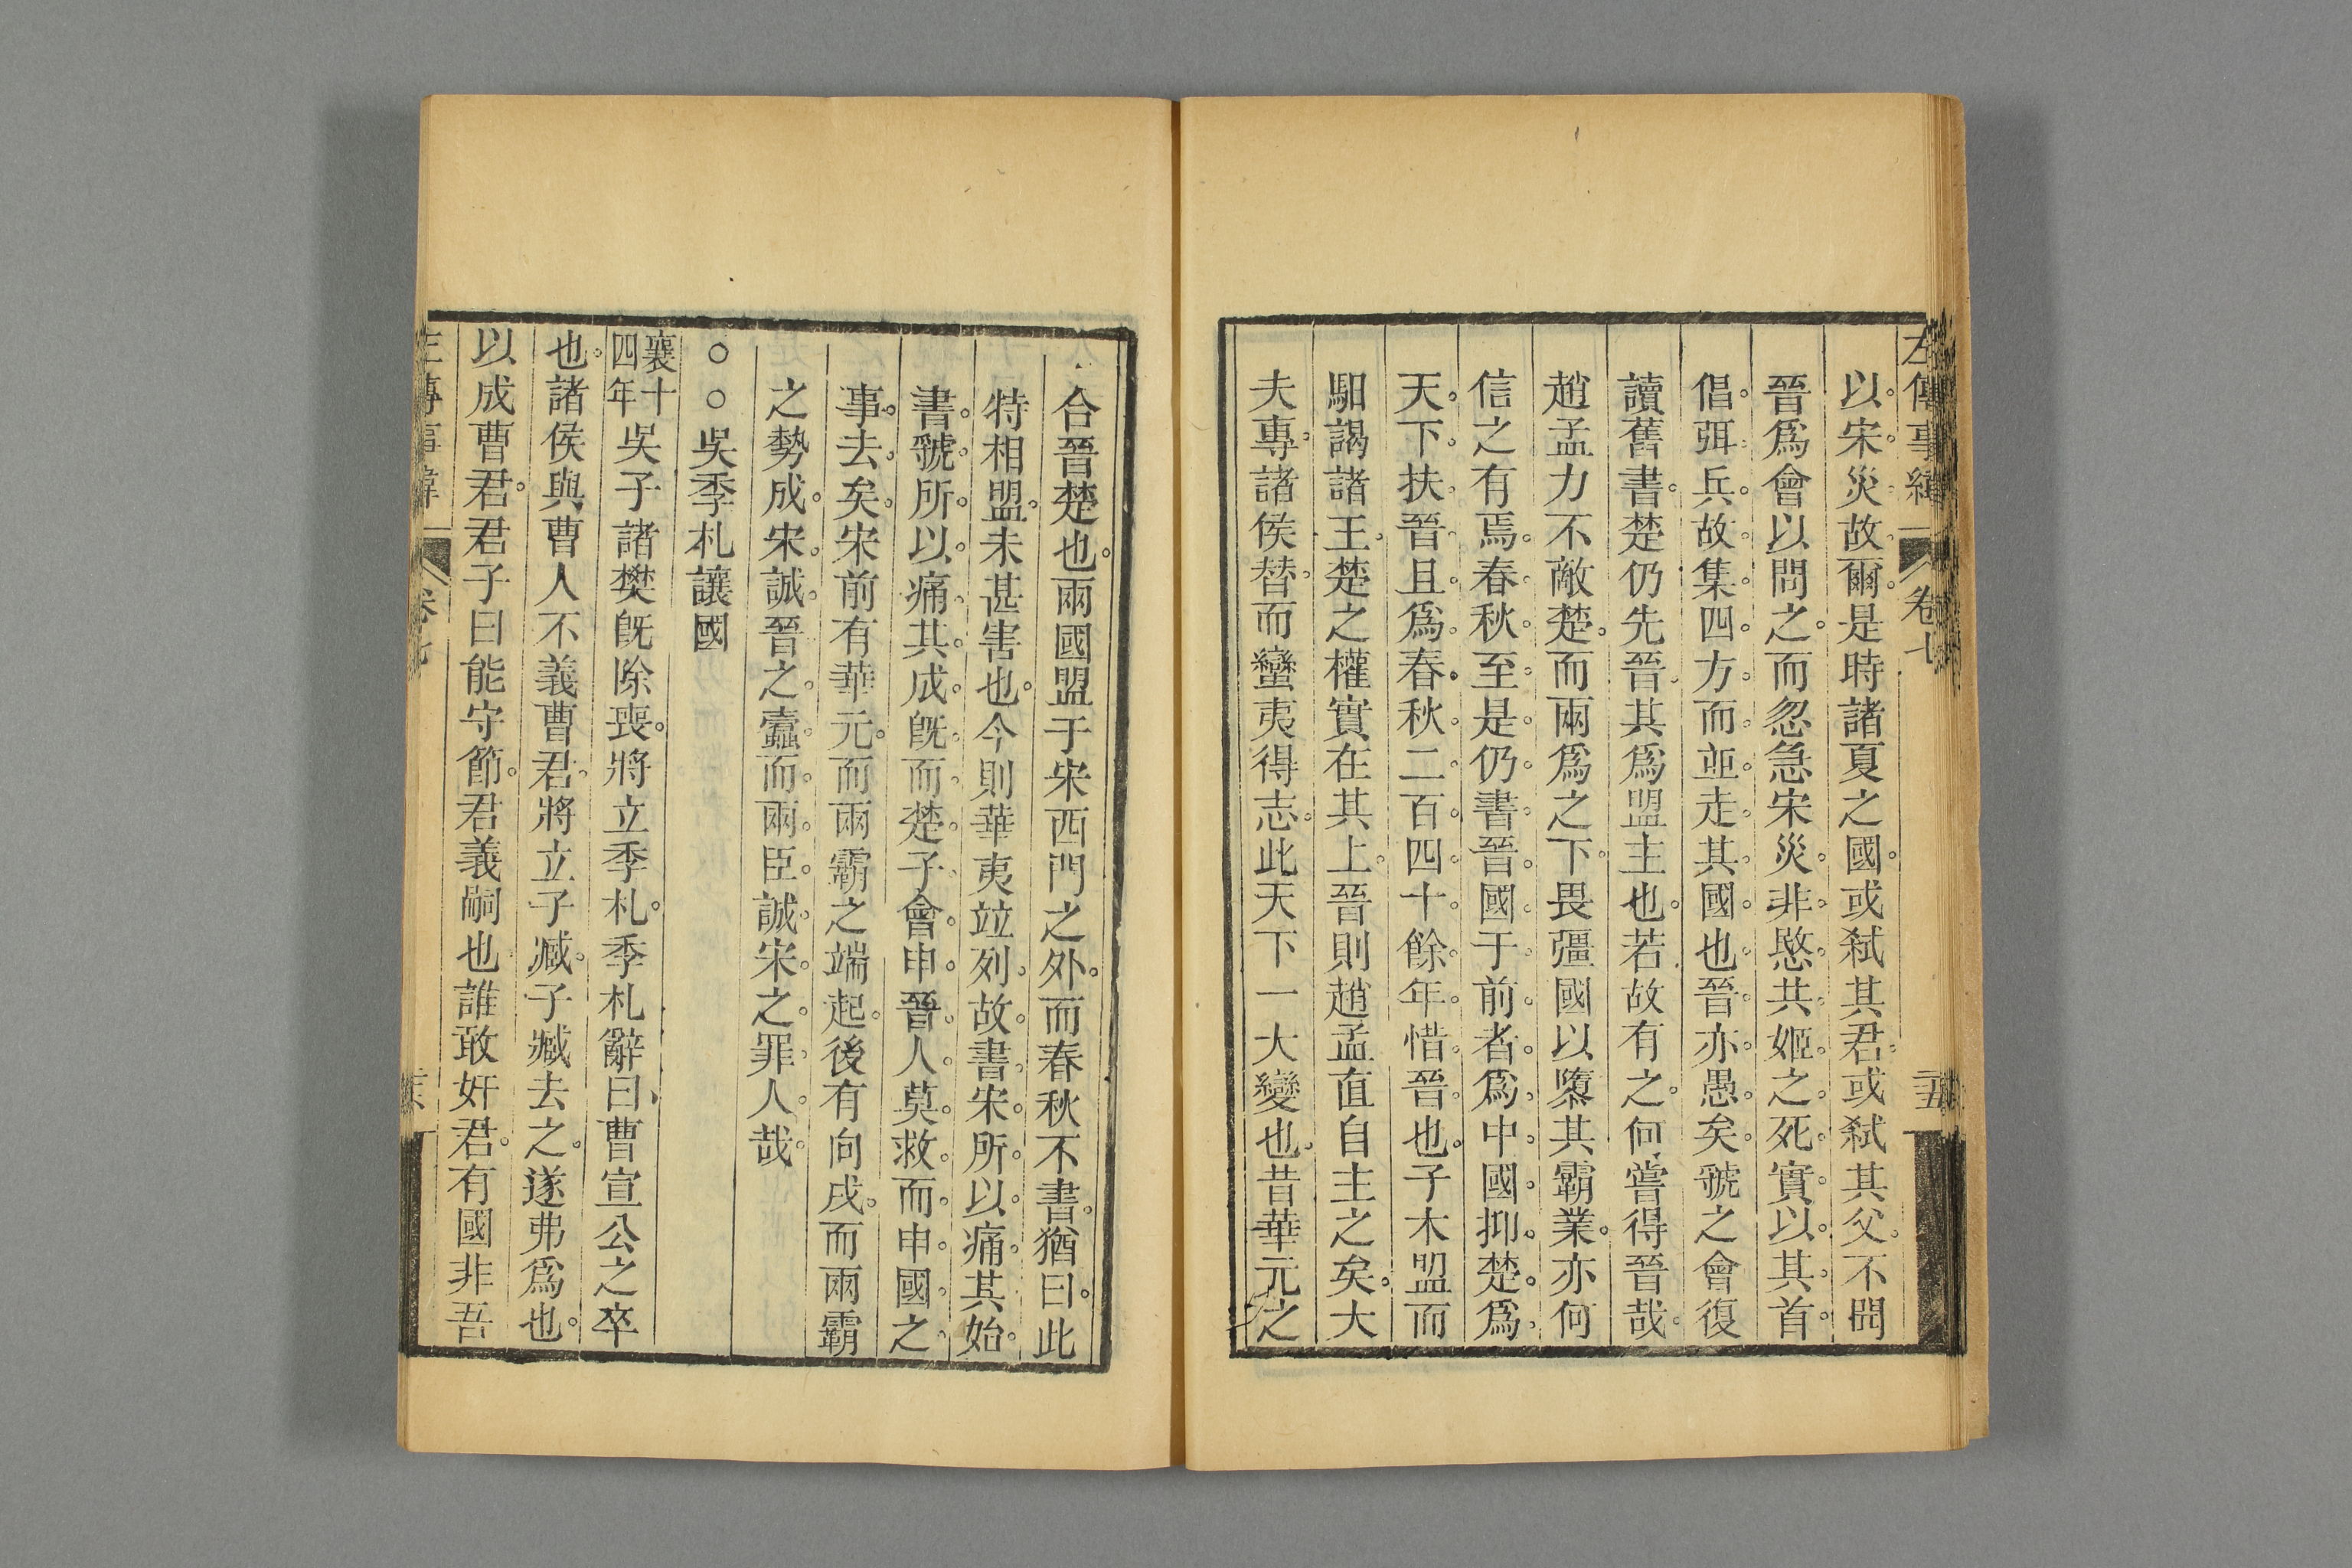 左傳事緯 卷七
以宋災故爾是時諸夏之國或弑其君或弑其父不聞
晉爲會以問之而忽急宋災非愍共姬之死實以其首
倡弭兵故集四方而並走其國也晉亦愚矣虢之會復
讀舊書楚仍先晉其爲盟主也若故有之何嘗得晉哉
趙孟力不敵楚而兩爲之下畏彊國以隳其霸業亦何
信之有焉春秋至是仍書晉國于前者爲中國抑楚爲
天下扶晉且爲春秋二百四十餘年惜晉也子木盟而
馹謁諸王楚之權實在其上晉則趙孟直自主之矣大
夫專諸侯替而蠻夷得志此天下一大變也昔華元之
合晉楚也兩國盟于宋西門之外而春秋不書猶曰此
特相盟未甚害也今則華夷竝列故書宋所以痛其始
書虢所以痛其成旣而楚子會申晉人莫救而申國之
事去矣宋前有華元而兩霸之端起後有向戌而兩霸
之勢成宋誠晉之蠹而兩臣誠宋之罪人哉
○○吳季札讓國
襄十四年吳子諸樊旣除喪將立季札季札辭曰曹宣公之卒
也諸侯與曹人不義曹君將立子臧子臧去之遂弗爲也
以成曹君君子曰能守節君義嗣也誰敢奸君有國非吾